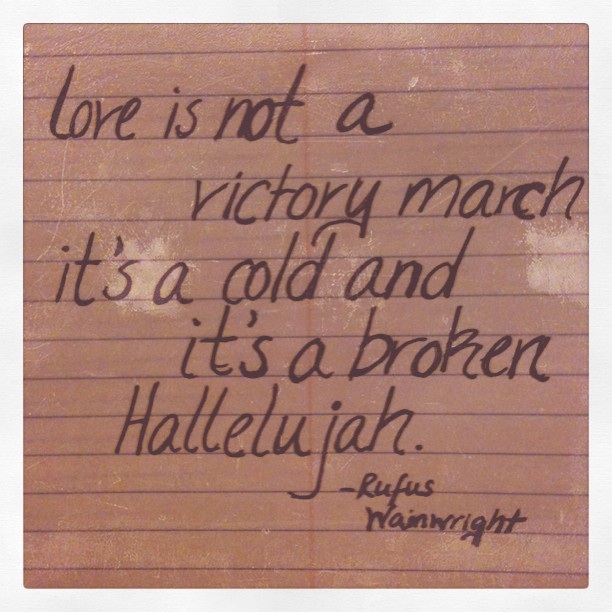 love is not a
victory march
it's a cold and
it's a broken
Hallelujah.
-Rufus
Wainwright